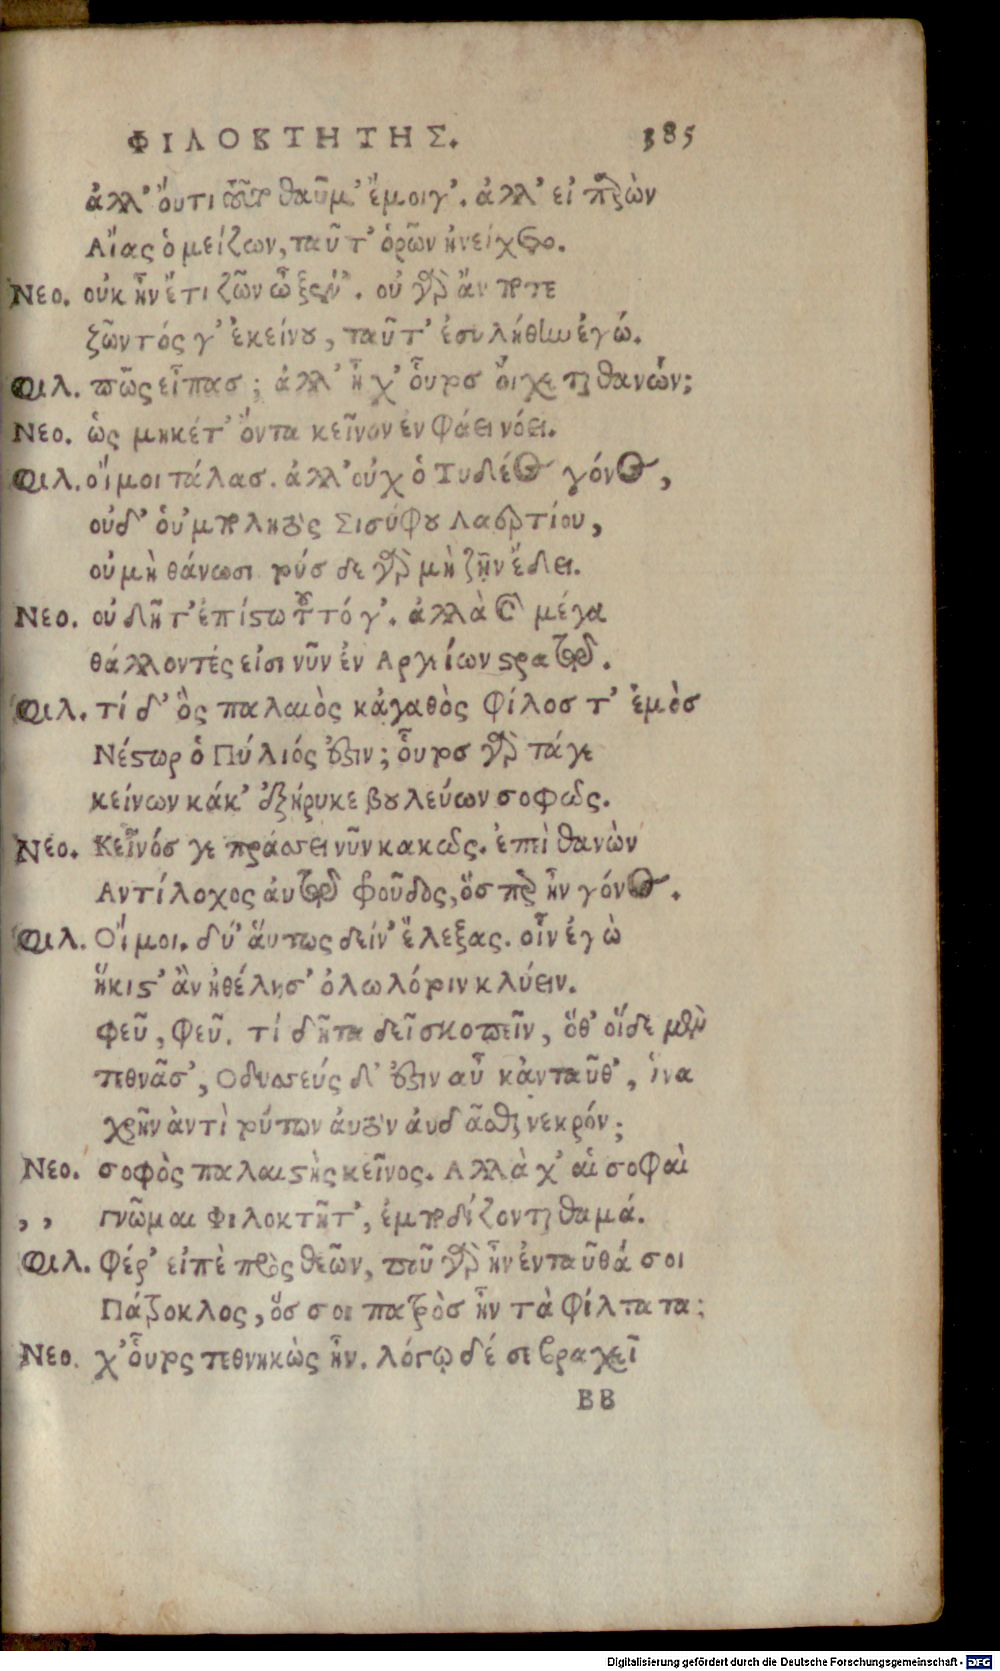 ΦΙΛΟΚΤΗΤΗΣ. 385
ἀλλ' ὄυτι τοῦτο θαῦμ' ἔμοιγ'. ἀλλ' εἰ παρὼν
Αἴας ὁ μείζων, ταῦτ' ὁρῶν ἠνείχετο.
Νεο. οὐκ ἦν ἔτι ζῶν ὦ ξέν'. οὐ γὰρ ἄν ποτε
ζῶντός γ' ἐκείνου, ταῦτ' ἐσυλήθην ἐγώ.
Φιλ. πῶς εἶπασ; ἀλλ' ἦ χ' οὗτοσ ὄιχεται θανών;
Νεο. ὡς μηκέτ' ὄντα κεῖνον ἐν φάει νόει.
Φιλ. οἴμοι τάλασ. ἀλλ' οὐχ ὁ Τυδέος γόνος,
οὐδ' οὑμποληθεὶς Σισύφου Λαερτίου,
οὐ μὴ θάνωσι τούσδε γὰρ μὴ ζῆν ἔδει.
Νεο. οὐ δῆτ' ἐπίστω τοῦτό γ'. ἀλλὰ καὶ μέγα
θάλλοντές εἰσι νῦν ἐν Αργείων στρατῷ.
Φιλ. τί δ' ὃς παλαιὸς κἀγαθὸς φίλοσ τ' ἐμὸσ
Νέστωρ ὁ Πύλιός ἐστιν; οὗτοσ γὰρ τάγε
κείνων κάκ' ἐξήρυκε βουλεύων σοφῶς.
Νεο. Κεῖνόσ γε πράσσει νῦν κακῶς. ἐπεὶ θανὼν
Αντίλοχος ἀυτῷ φροῦδος, ὅσπερ ἦν γόνος.
Φιλ. Οἴμοι. δύ' ἄυτως δείν' ἔλεξας. οἷν ἐγὼ
ἥκιστ' ἂν ἠθέλησ' ὀλωλότοιν κλύειν.
φεῦ, φεῦ. τί δῆτα δεῖ σκοπεῖν, ὅθ' οἵδε μὲν
τεθνᾶσ', Οδυσσεύς δ' ἐστιν αὖ κἀνταῦθ', ἱνα
χρῆν ἀντὶ τούτων ἀυτὸν ἀυδᾶσθαι νεκρόν;
Νεο. σοφὸς παλαιστὴς κεῖνος. Αλλὰ χ' αἱ σοφαὶ
,, γνῶμαι Φιλοκτῆτ', ἐμποδίζονται θαμά.
Φιλ. Φέρ' εἰπὲ πρὸς θεῶν, ποῦ γὰρ ἦν ἐνταῦθά σοι
Πάτροκλος, ὅς σοι πατρὸσ ἦν τὰ φίλτατα;
Νεο. χ' οὗτος τεθνηκὼς ἦν. λόγῳ δέ σε βραχεῖ
ΒΒ
Digitalisierung gefördert durch die Deutsche Forschungsgemeinschaft - DFG